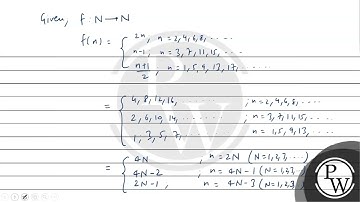 Given, f : N → N
f(n) = { 2n, n = 2, 4, 6, 8, .....
n-1; n = 3, 7, 11, 15, ....
n+1/2, n = 1, 5, 9, 13, 17, .....
= { 4, 8, 12, 16, ..... ; n = 2, 4, 6, 8, ....
2, 6, 10, 14, ..... ; n = 3, 7, 11, 15, ....
1, 3, 5, 7, .. n = 1, 5, 9, 13, ...
= { 4N , n = 2N (N = 1, 2, 3, ...)
4N-2 ; n = 4N-1 (N = 1, 2, 3 ...)
2N-1 , n = 4N-3 (N = 1, 2, 3 ...)
P
W